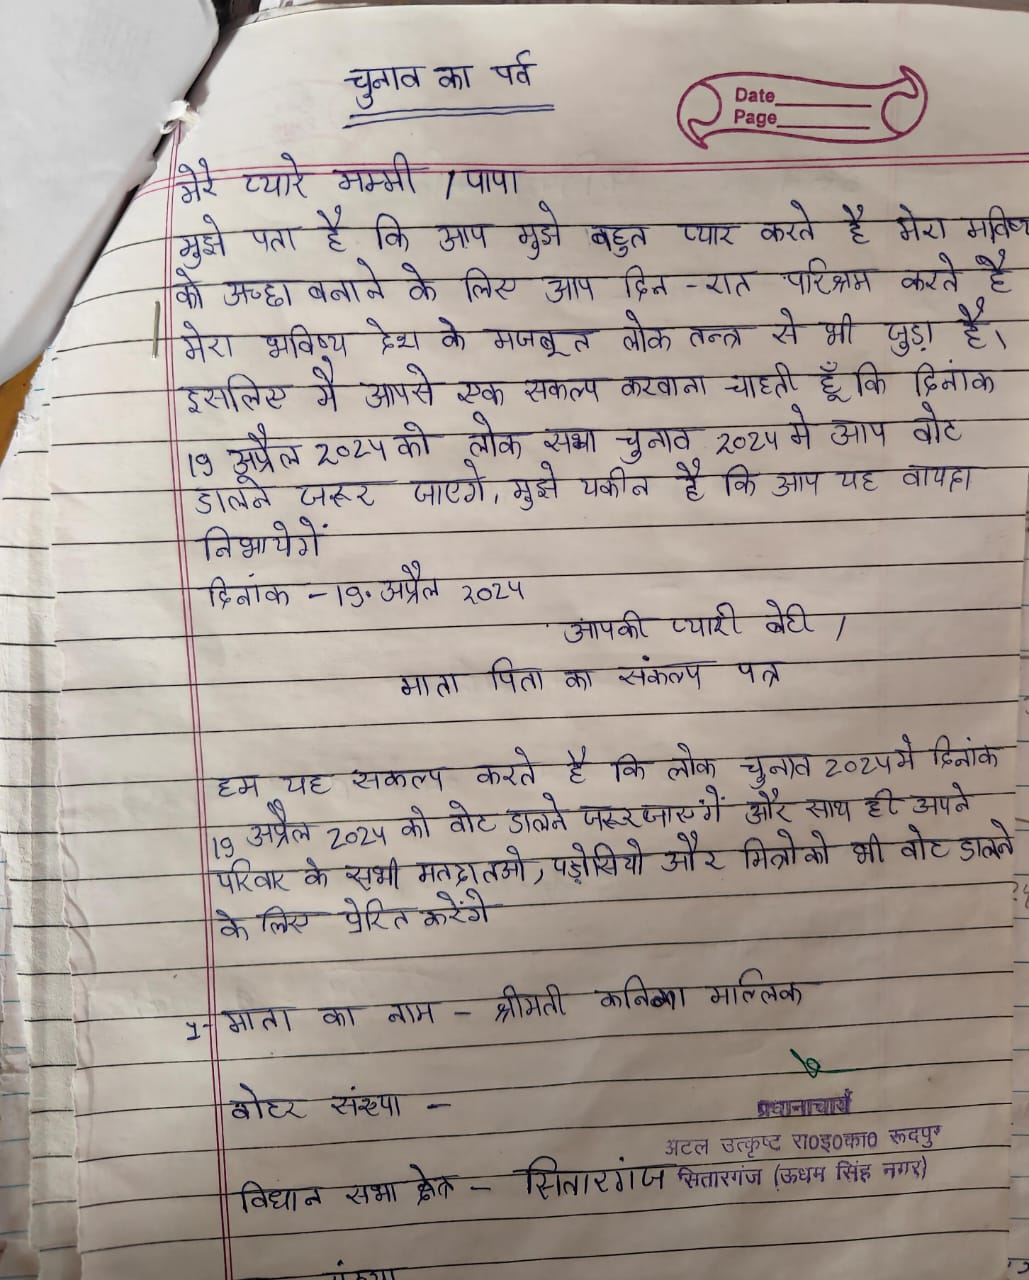 चुनाव का पर्व
Date
Page
मेरे प्यारे मम्मी / पापा
मुझे पता है कि आप मुझे बहुत प्यार करते है मेरा भविष्य
को अच्छा बनाने के लिए आप दिन - रात परिश्रम करते है
मेरा भविष्य देश के मजबूत लोक तन्त्र से भी जुड़ा है।
इसलिए मै आपसे एक सकल्प करवाना चाहती हूँ कि दिनांक
19 अप्रैल 2024 को लोक सभा चुनाव 2024 मे आप वोट
डालने जरूर जाएगे, मुझे यकीन है कि आप यह वायदा
निभायेगें
दिनांक - 19. अप्रैल 2024
आपकी प्यारी बेटी /
माता पिता का संकल्प पत्र
हम यह सकल्प करते है कि लोक चुनाव 2024 मे दिनांक
19 अप्रैल 2024 को वोट डालने जरूर जाएगें और साथ ही अपने
परिवार के सभी मतदातओ, पड़ोसियो और मित्रो को भी वोट डालने
के लिए प्रेरित करेंगे
1- माता का नाम - श्रीमती कनिका मल्लिक
वोटर संख्या -
प्रधानाचार्य
अटल उत्कृष्ट रा०इ०का० रूदपुर
विधान सभा क्षेत्र - सितारगंज
सितारगंज (ऊधम सिंह नगर)